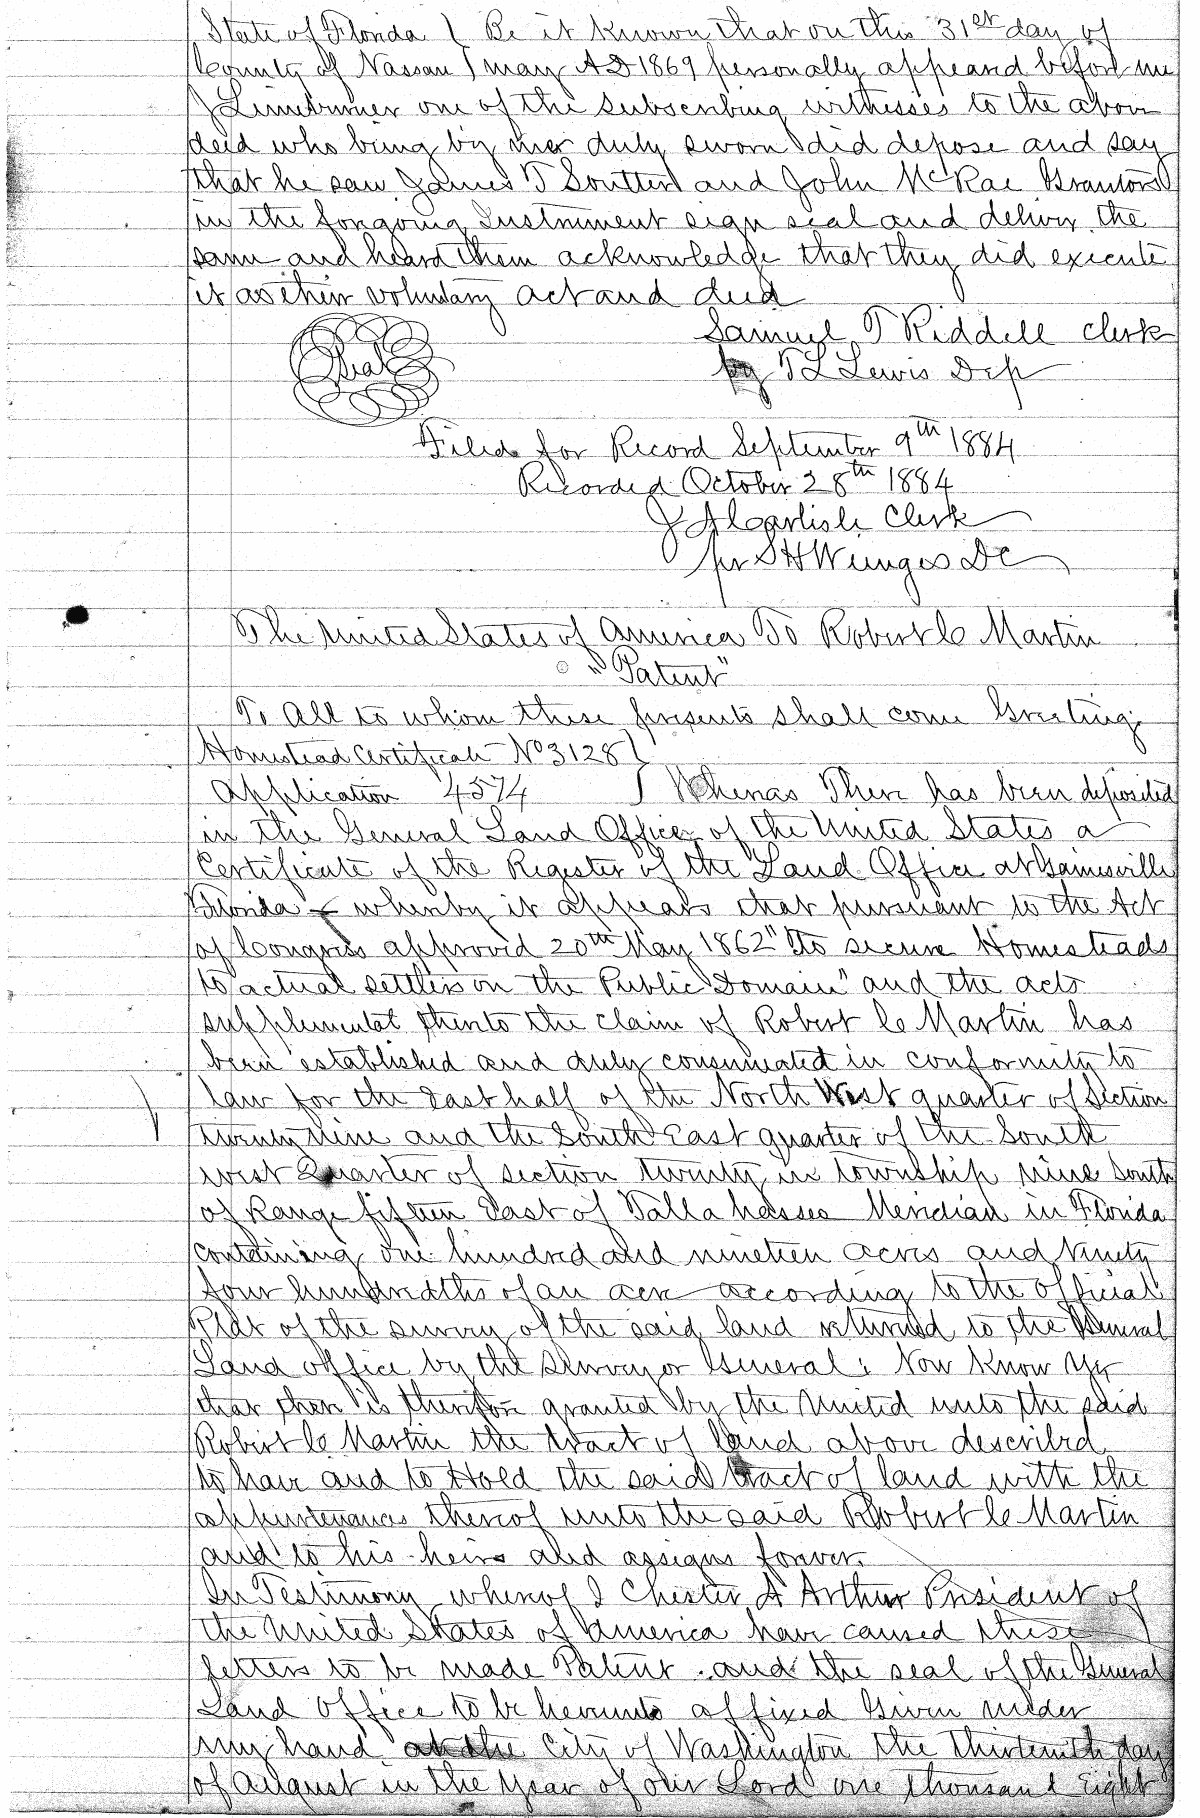 State of Florida } Be it known that on this 31st day of
County of Nassau } May AD 1869 personally appeard before me
J Limeburner one of the subscribing witnesses to the above
deed who being by me duly sworn did depose and say
that he saw James T Soutter and John McRae Grantors
in the forgoing Instrument sign seal and deliver the
same and heard them acknowledge that they did execute
it as their voluntary act and deed
Samuel T Riddell Clerk
Seal
by T L Lewis Dep
Filed for Record September 9th 1884
Recorded October 28th 1884
J A Carlisle Clerk
pr S H Wienges DC
The United States of America To Robert C Martin
"Patent"
To All to whom these presents shall come Greeting:
Homestead Certificate No 3128 }
Application 4574 } Whereas There has been deposited
in the General Land Office of the United States a
Certificate of the Register of the Land Office at Gainesville
Florida whereby it appears that pursuant to the Act
of Congress approved 20th May 1862 "To secure Homesteads
to actual settlers on the Public Domain" and the acts
supplemental thereto the claim of Robert C Martin has
been established and duly consumated in conformity to
law for the East half of the North West quarter of Section
twenty nine and the South East quarter of the South
west Quarter of section twenty in township nine South
of Range fifteen East of Tallahassee Meridian in Florida
containing one hundred and nineteen acres and Ninety
four hundredths of an acre according to the official
Plat of the survey of the said land returned to the General
Land office by the Surveyor General: Now Know Ye
that there is therefore granted by the United unto the said
Robert C Martin the tract of land above described
to have and to Hold the said tract of land with the
appurtenances thereof unto the said Robert C Martin
and to his heirs and assigns forever.
In Testimony whereof I Chester A Arthur President of
the United States of America have caused these
letters to be made Patent and the seal of the General
Land Office to be hereunto affixed Given under
my hand at the City of Washington the thirteenth day
of August in the year of our Lord one thousand Eight